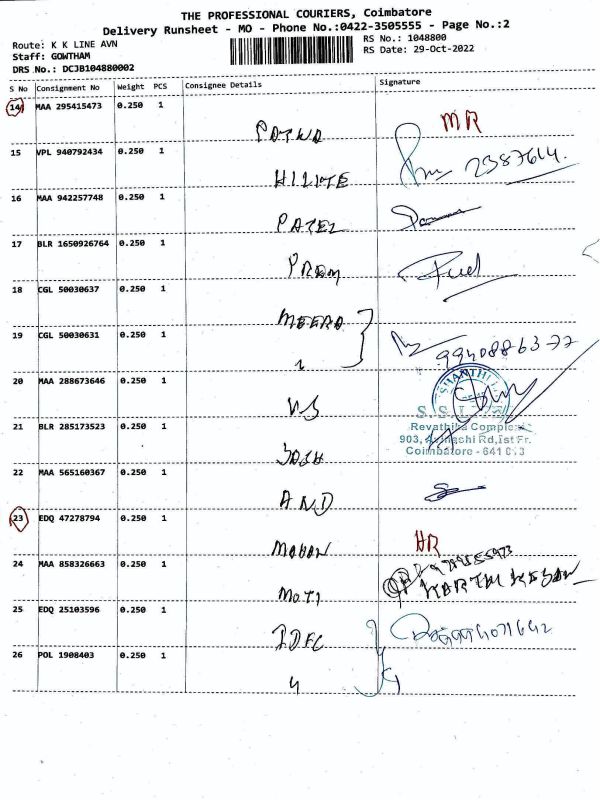 THE PROFESSIONAL COURIERS, Coimbatore
Delivery Runsheet - MO - Phone No.:0422-3505555 - Page No.:2
Route: K K LINE AVN
RS No.: 1048800
Staff: GOWTHAM
RS Date: 29-Oct-2022
DRS No.: DCJB104880002
S No Consignment No Weight PCS Consignee Details Signature
14 MAA 295415473 0.250 1
MR
15 VPL 940792434 0.250 1
HILITE
16 MAA 942257748 0.250 1
PATEL
17 BLR 1650926764 0.250 1
PREM
18 CGL 50030637 0.250 1
MEERA
19 CGL 50030631 0.250 1
9940886377
20 MAA 288673646 0.250 1
VS
SHANTHI
Revathika Complex
21 BLR 285173523 0.250 1
Coimbatore - 641 013
22 MAA 565160367 0.250 1
AND
23 EDQ 47278794 0.250 1
MOHAN HR
24 MAA 858326663 0.250 1
MOTI
25 EDQ 25103596 0.250 1
IDFC
26 POL 1908403 0.250 1